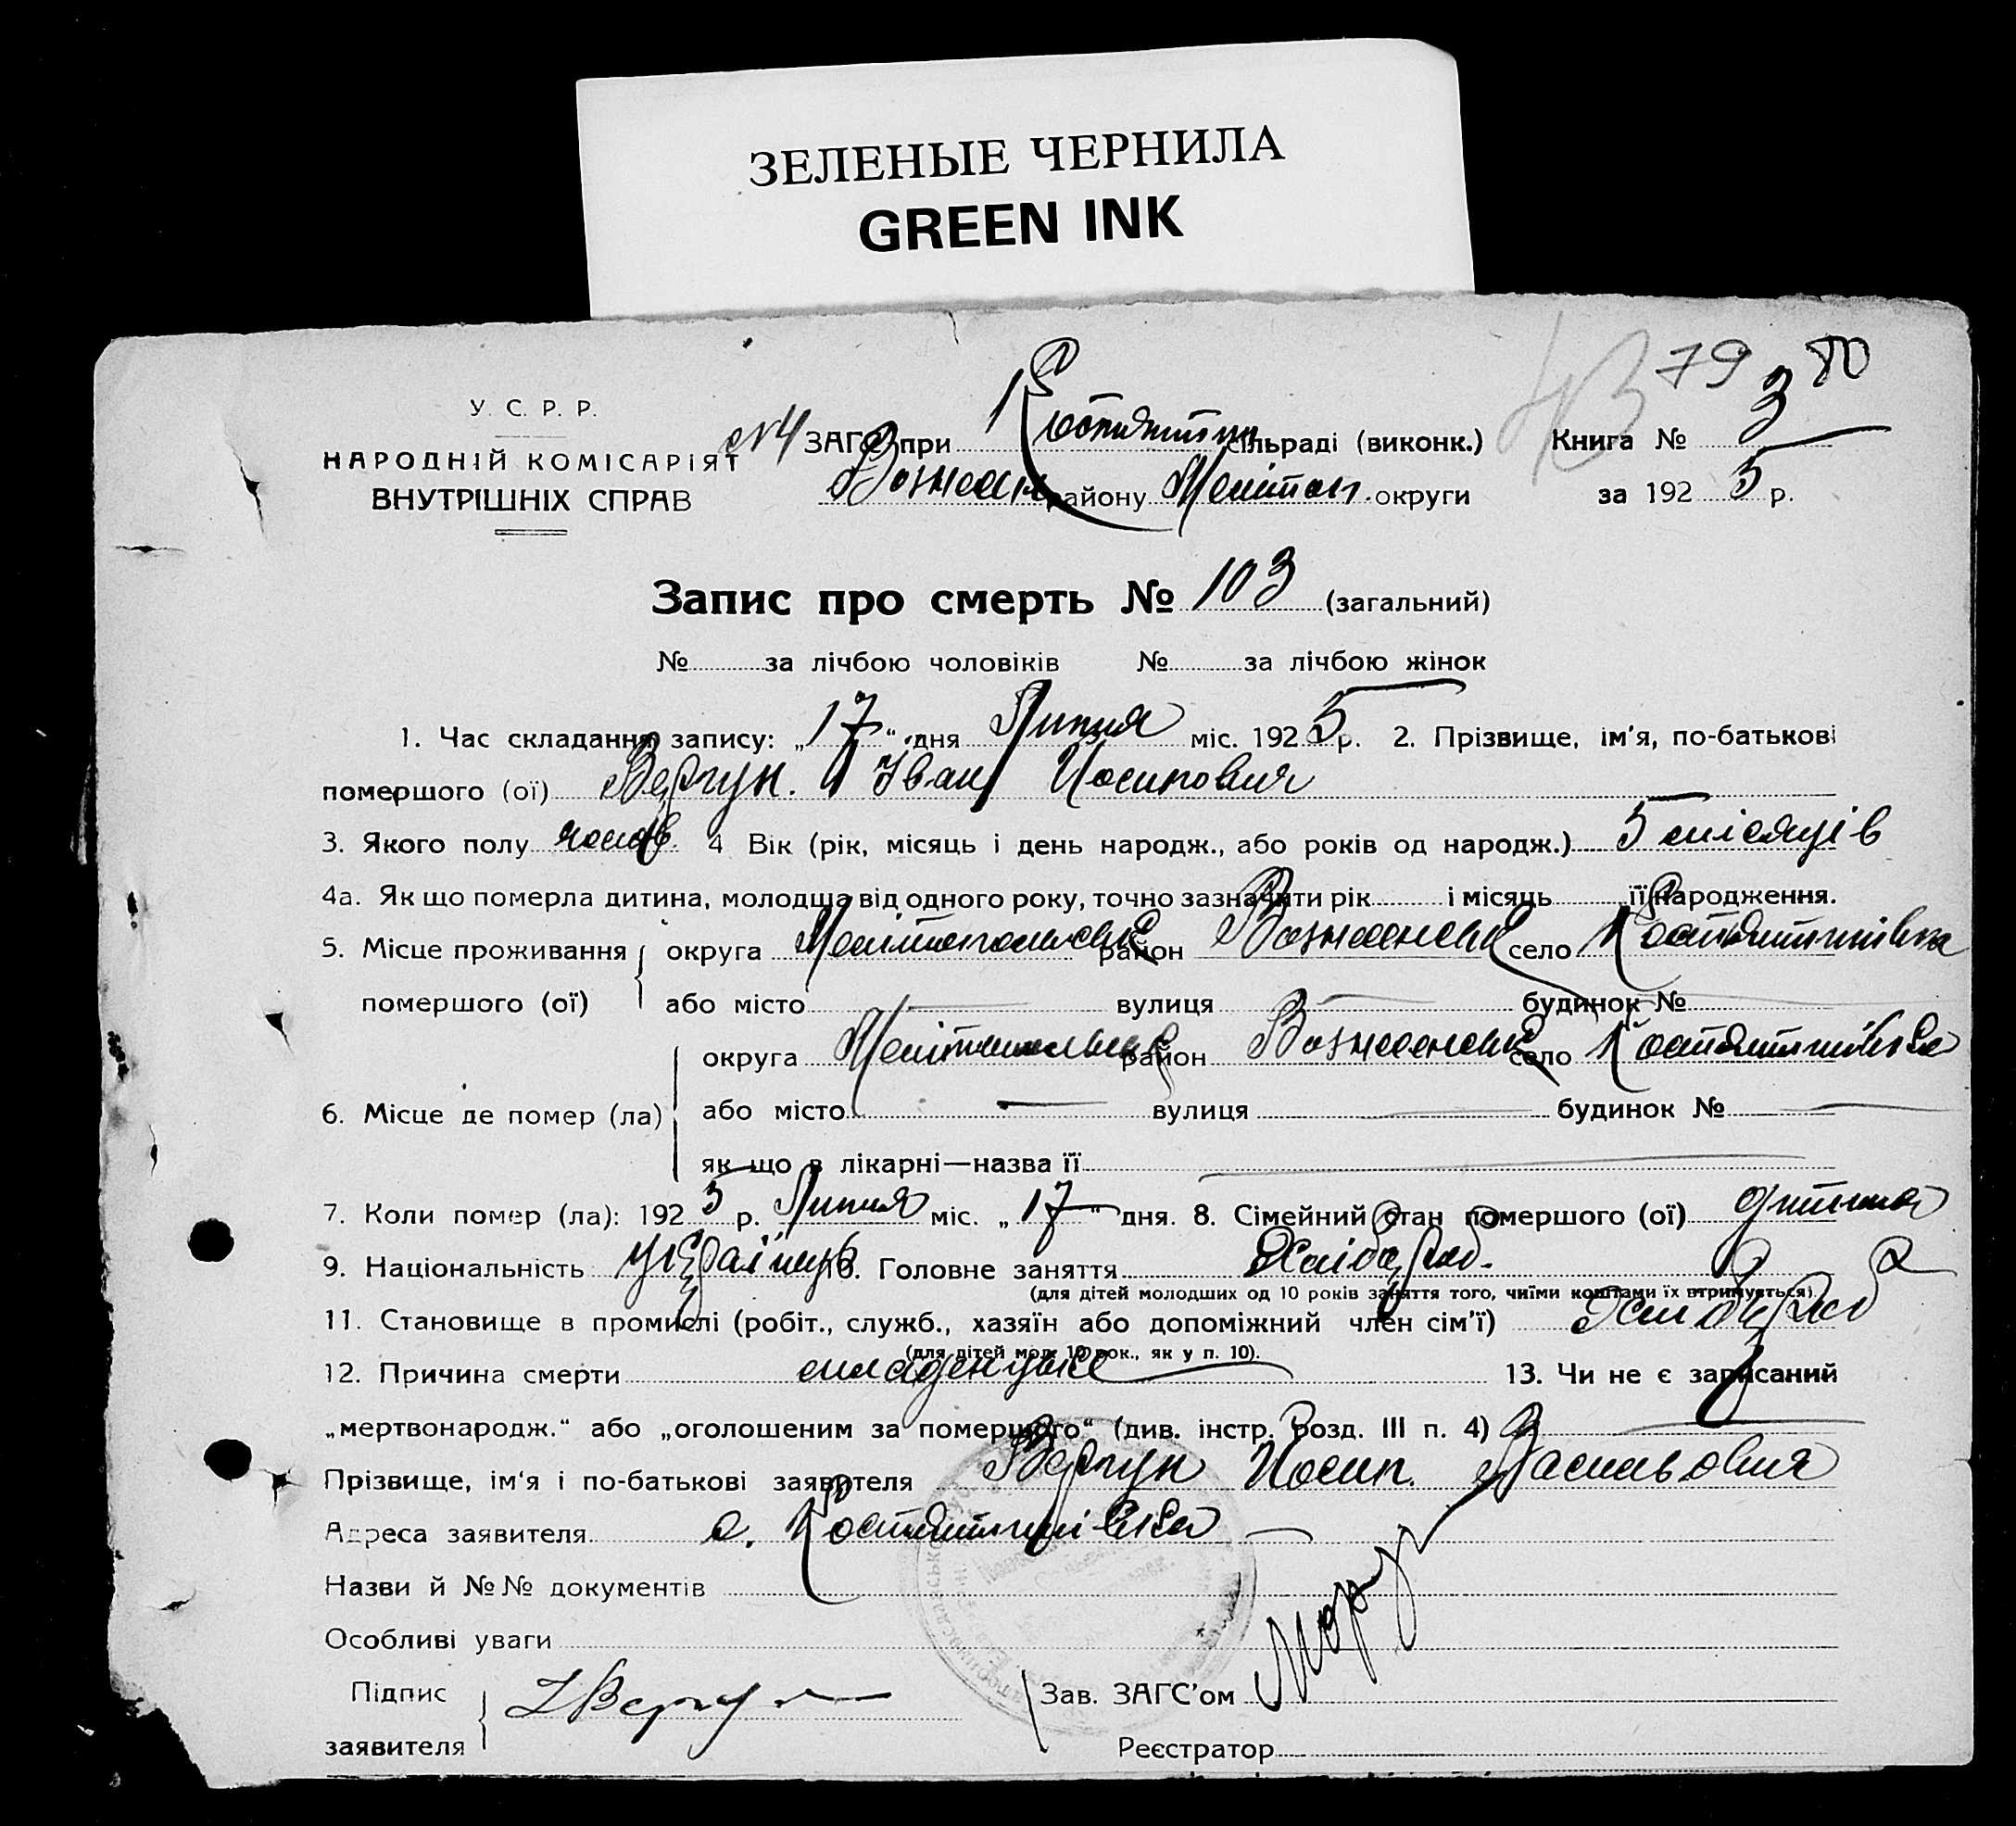 ЗЕЛЕНЫЕ ЧЕРНИЛА
GREEN INK
79 3 80
У. С. Р. Р.
НАРОДНІЙ КОМІСАРІЯТ
ВНУТРІШНІХ СПРАВ
№4 ЗАГС при Костянтин сільраді (виконк.) Книга № 3
Вознесен району Меліտոп. округи за 1925 р.
Запис про смерть № 103 (загальний)
№ за лічбою чоловіків № за лічбою жінок
1. Час складання запису: „17“ дня Липня міс. 1925 р. 2. Прізвище, ім'я, по-батькові
помершого (ої) Вергун. Іван Йосипович
3. Якого полу чолов. 4 Вік (рік, місяць і день народж., або років од народж.) 5 місяців
4а. Як що померла дитина, молодша від одного року, точно зазначити рік і місяць її народження.
5. Місце проживання округа Мелітопольськ район Вознесенськ село Костянтинівка
помершого (ої) або місто вулиця будинок №
округа Мелітопольськ район Вознесенськ село Костянтинівка
6. Місце де помер (ла) або місто вулиця будинок №
як що в лікарні—назва її
7. Коли помер (ла): 1925 р. Липня міс. „17“ дня. 8. Сімейний стан помершого (ої) дитина
9. Національність Українець 10. Головне заняття Хлібороб.
(для дітей молодших од 10 років заняття того, чиїми коштами їх втримується).
11. Становище в промислі (робіт., служб., хазяїн або допоміжний член сім'ї) Хлібороб
(для дітей мол. 10 рок., як у п. 10).
12. Причина смерти младенчьке 13. Чи не є записаний
„мертвонародж.“ або „оголошеним за померщого“ (див. інстр. Розд. III п. 4)
Прізвище, ім'я і по-батькові заявителя Вергун Йосип. Васильович
Адреса заявителя с. Костянтинівка
Назви й №№ документів
Особливі уваги
Підпис заявителя Вергун Зав. ЗАГС'ом
Реєстратор